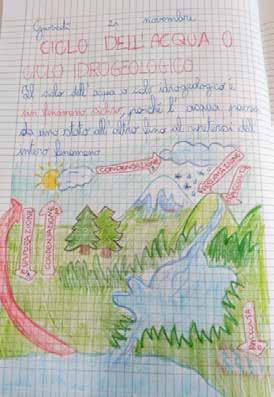 Giovedì 21 novembre
CICLO DELL'ACQUA O
CICLO IDROGEOLOGICO
Il ciclo dell'acqua o ciclo idrogeologico è
un fenomeno ciclico perché l'acqua passa
da uno stato all'altro fino al
intero fenomeno
CONDENSAZIONE
PRECIPITAZIONE
EVAPORAZIONE
CONDENSAZIONE
RACCOLTA